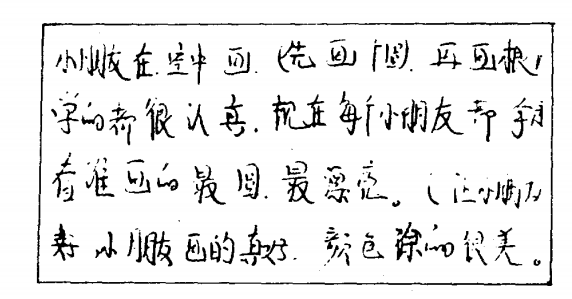 小朋友在空中画.(先画个圆.再画根
学的都很认真.现在每个小朋友都
看谁画的最圆.最漂亮。(让小朋友
小朋友画的真好.颜色涂的很美。